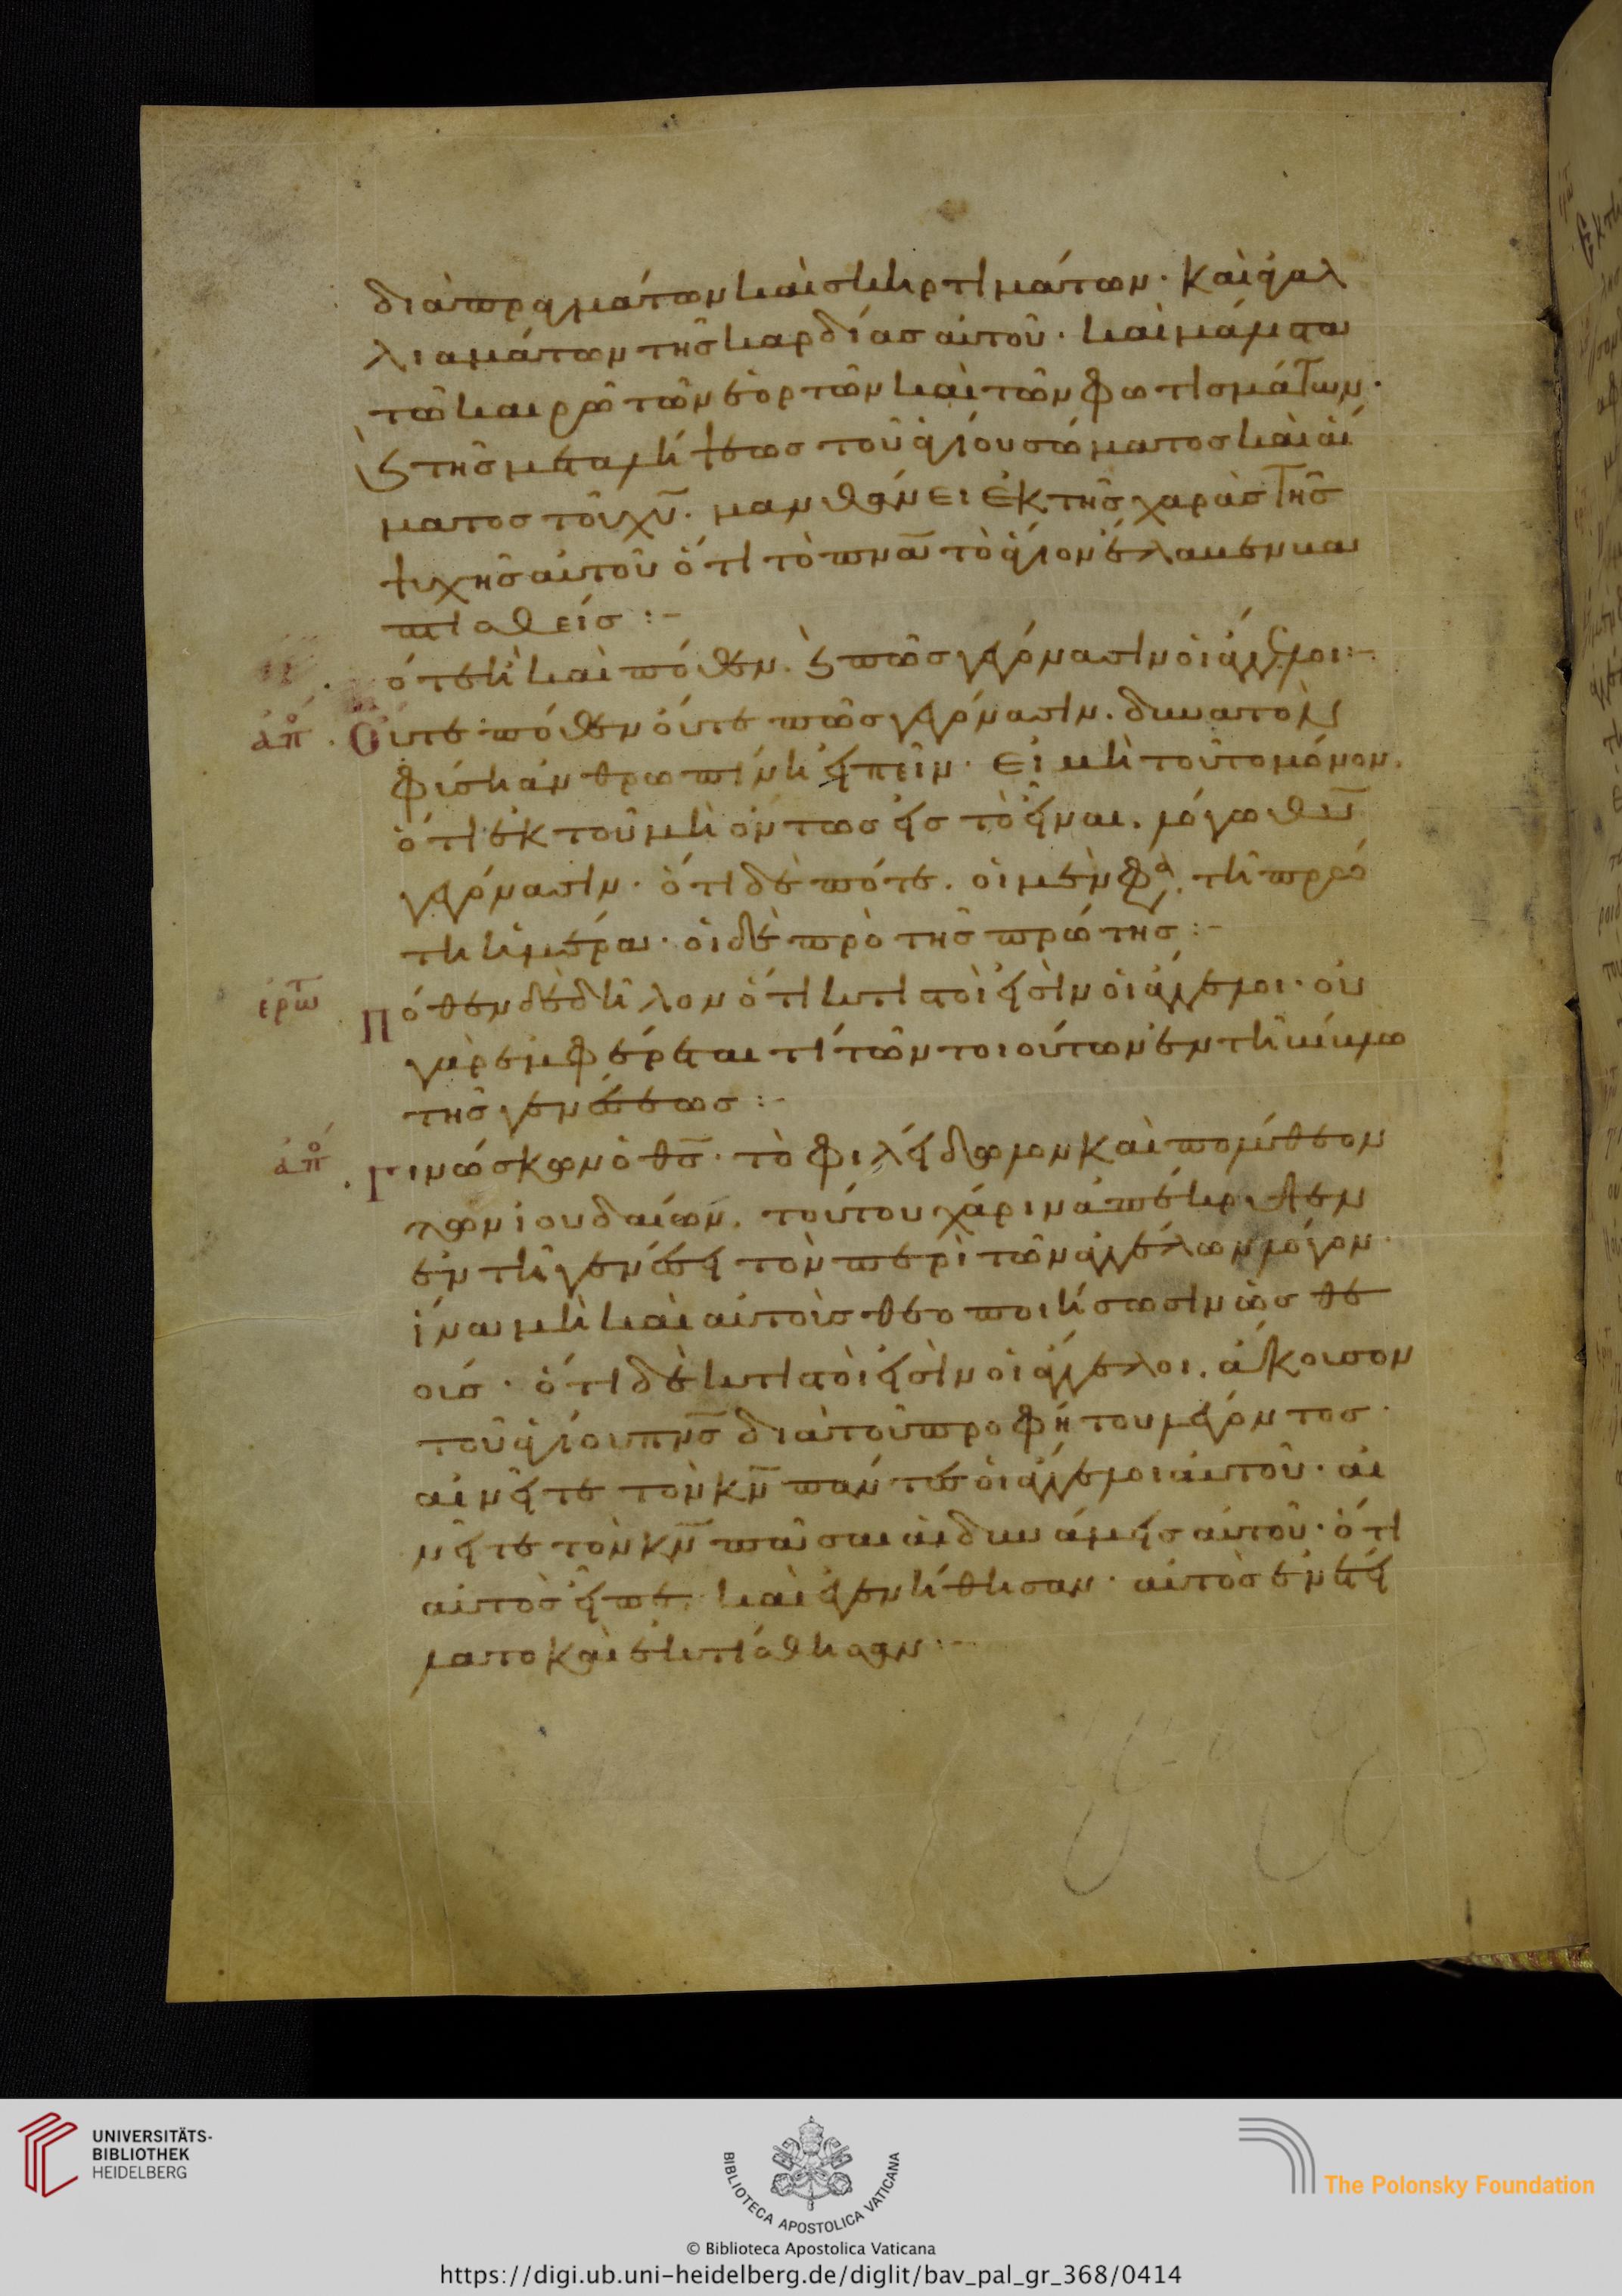 διὰ πραγμάτων καὶ σκιρτιμάτων· καὶ ἀγαλ
λιαμάτων τῆς καρδίας αὐτοῦ· καὶ μάλιστα
τῶ καιρῶ τῶν ἑορτῶν καὶ τῶν φωτισμάτων·
ϗ τῆς μεταλήψεως τοῦ ἁγίου σώματος καὶ αἵ
ματος τοῦ χυ̅. μανθάνει ἐκ τῆς χαρᾶς τῆς
ψυχῆς αὐτοῦ ὅτι τὸ πνα̅ τὸ ἅγιον ἔλαβεν βα
πτισθείς :-
ὅτε ἢ καὶ πόθεν. ϗ πῶς γεγόνασιν οἱ ἄγγελοι :-
ἀπο
Οὔτε πόθεν οὔτε πῶς γεγόνασιν. δυνατὸν
φύσει ἀνθρωπίνη εἰπεῖν· εἰ μὴ τοῦτο μόνον.
ὅτι ἐκ τοῦ μὴ ὄντως εἰς τὸ εἶναι. λόγω θυ̅
γεγόνασιν· ὅτι δὲ πότε. οἱ μὲν φα. τῆ πρώ
τη ἡμέρα· οἱ δὲ πρὸ τῆς πρώτης :-
ἐρωτ
Πόθεν δὲ δῆλον ὅτι κτιστοὶ εἰσὶν οἱ ἄγγελοι· οὐ
γὰρ ἐμφέρεται τί τῶν τοιούτων ἐν τῆ βίβλω
τῆς γενέσεως :-
ἀπο
Γινώσκων ὁ θς̅· τὸ φιλείδωλον καὶ πολύθεον
τῶν ἰουδαίων. τούτου χάριν ἀπέκρυψεν
ἐν τῆ γενέσει τὸν περὶ τῶν ἀγγέλων λόγον·
ἵνα μὴ καὶ αὐτοὺς θεοποιήσωσιν ὡς θε
ούς· ὅτι δὲ κτιστοὶ εἰσὶν οἱ ἄγγελοι. ἄκουσον
τοῦ ἁγίου πνς̅ διὰ τοῦ προφήτου λέγοντος·
αἰνεῖτε τὸν κν̅ πάντες οἱ ἄγγελοι αὐτοῦ· αἰ
νεῖτε τὸν κν̅ πᾶσαι αἱ δυνάμεις αὐτοῦ· ὅτι
αὐτὸς εἶπε. καὶ ἐγενήθησαν· αὐτὸς ἐνετεί
λατο καὶ ἐκτίσθησαν :-
UNIVERSITÄTS-
BIBLIOTHEK
HEIDELBERG
BIBLIOTECA APOSTOLICA VATICANA
The Polonsky Foundation
© Biblioteca Apostolica Vaticana
https://digi.ub.uni-heidelberg.de/diglit/bav_pal_gr_368/0414